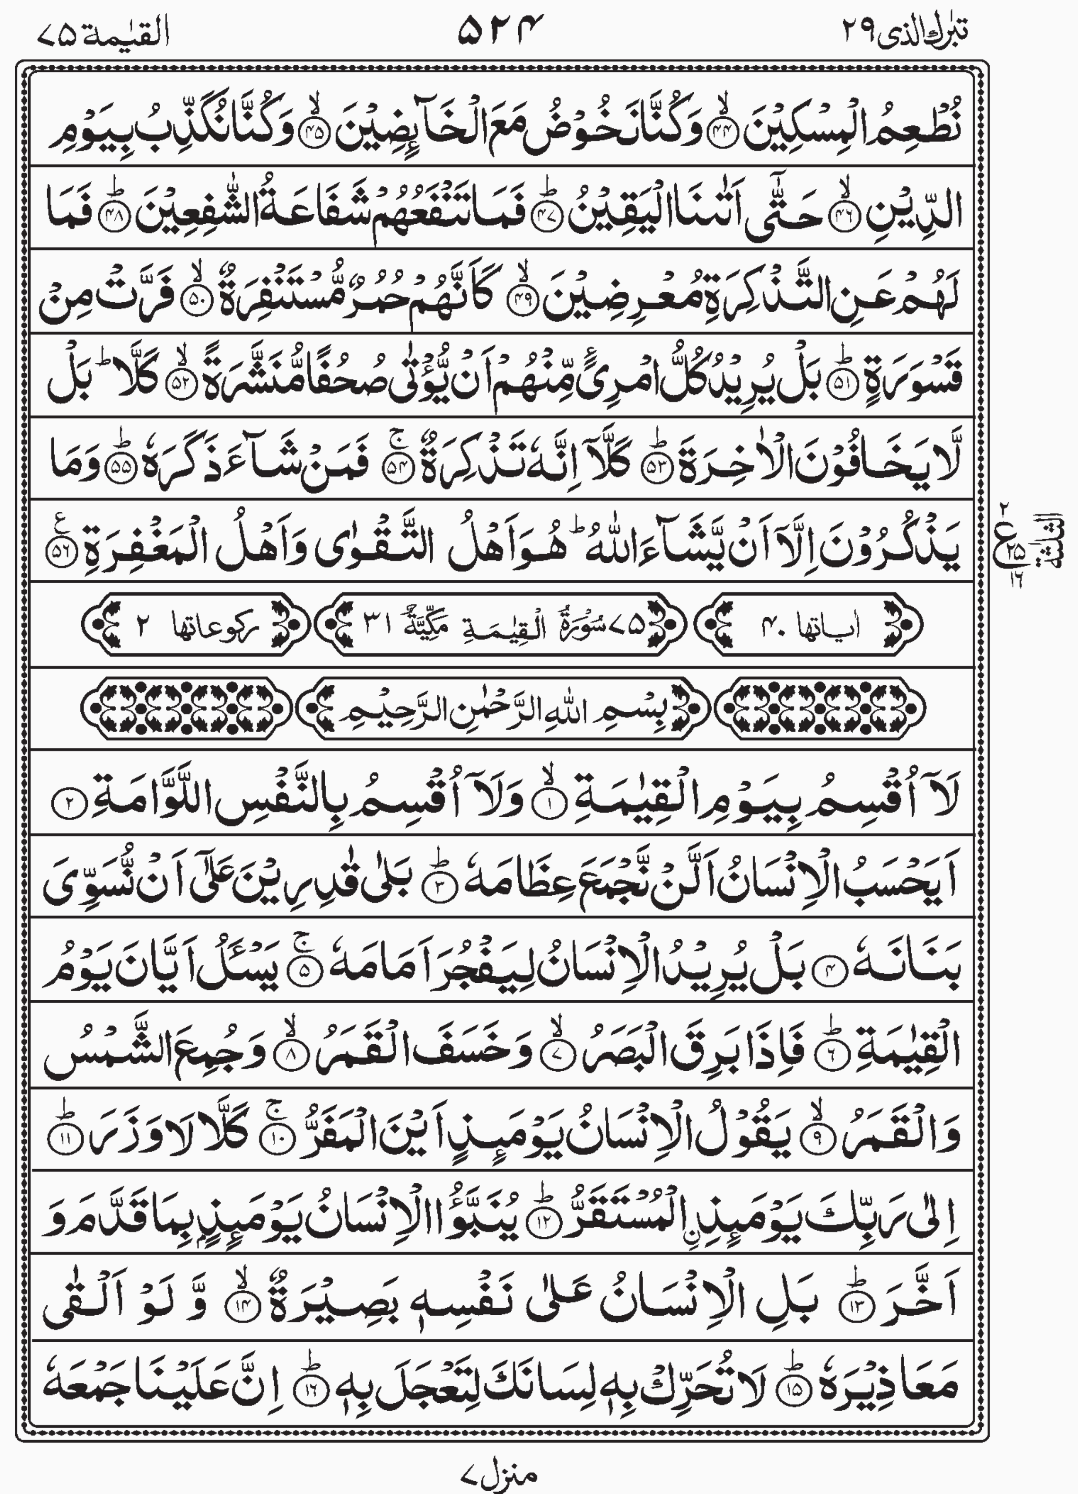 تبٰرك الذی ۲۹
۵۲۴
القيٰمة ۷۵
نُطْعِمُ الْمِسْكِيْنَ ۙ﴿۴۴﴾ وَكُنَّا نَخُوْضُ مَعَ الْخَآئِضِيْنَ ۙ﴿۴۵﴾ وَكُنَّا نُكَذِّبُ بِيَوْمِ
الدِّيْنِ ۙ﴿۴۶﴾ حَتّٰٓى اَتٰىنَا الْيَقِيْنُ ؕ﴿۴۷﴾ فَمَا تَنْفَعُهُمْ شَفَاعَةُ الشّٰفِعِيْنَ ؕ﴿۴۸﴾ فَمَا
لَهُمْ عَنِ التَّذْكِرَةِ مُعْرِضِيْنَ ۙ﴿۴۹﴾ كَاَنَّهُمْ حُمُرٌ مُّسْتَنْفِرَةٌ ۙ﴿۵۰﴾ فَرَّتْ مِنْ
قَسْوَرَةٍ ؕ﴿۵۱﴾ بَلْ يُرِيْدُ كُلُّ امْرِئٍ مِّنْهُمْ اَنْ يُّؤْتٰى صُحُفًا مُّنَشَّرَةً ۙ﴿۵۲﴾ كَلَّا ؕ بَلْ
لَّا يَخَافُوْنَ الْاٰخِرَةَ ؕ﴿۵۳﴾ كَلَّاۤ اِنَّهٗ تَذْكِرَةٌ ۚ﴿۵۴﴾ فَمَنْ شَآءَ ذَكَرَهٗ ؕ﴿۵۵﴾ وَمَا
يَذْكُرُوْنَ اِلَّاۤ اَنْ يَّشَآءَ اللّٰهُ ؕ هُوَ اَهْلُ التَّقْوٰى وَاَهْلُ الْمَغْفِرَةِ ﴿۵۶﴾ ع
۲ ع ۲۵ ۱۶
الثلثة
اٰياتها ۴۰
۷۵ سُوْرَةُ الْقِيٰمَةِ مَكِّيَّةٌ ۳۱
ركوعاتها ۲
بِسْمِ اللّٰهِ الرَّحْمٰنِ الرَّحِيْمِ
لَاۤ اُقْسِمُ بِيَوْمِ الْقِيٰمَةِ ۙ﴿۱﴾ وَلَاۤ اُقْسِمُ بِالنَّفْسِ اللَّوَّامَةِ ﴿۲﴾
اَيَحْسَبُ الْاِنْسَانُ اَلَّنْ نَّجْمَعَ عِظَامَهٗ ؕ﴿۳﴾ بَلٰى قٰدِرِيْنَ عَلٰۤى اَنْ نُّسَوِّيَ
بَنَانَهٗ ﴿۴﴾ بَلْ يُرِيْدُ الْاِنْسَانُ لِيَفْجُرَ اَمَامَهٗ ۚ﴿۵﴾ يَسْـَٔلُ اَيَّانَ يَوْمُ
الْقِيٰمَةِ ؕ﴿۶﴾ فَاِذَا بَرِقَ الْبَصَرُ ۙ﴿۷﴾ وَخَسَفَ الْقَمَرُ ۙ﴿۸﴾ وَجُمِعَ الشَّمْسُ
وَالْقَمَرُ ۙ﴿۹﴾ يَقُوْلُ الْاِنْسَانُ يَوْمَئِذٍ اَيْنَ الْمَفَرُّ ۚ﴿۱۰﴾ كَلَّا لَا وَزَرَ ؕ﴿۱۱﴾
اِلٰى رَبِّكَ يَوْمَئِذِ ِ۟الْمُسْتَقَرُّ ؕ﴿۱۲﴾ يُنَبَّؤُا الْاِنْسَانُ يَوْمَئِذٍۭ بِمَا قَدَّمَ وَ
اَخَّرَ ؕ﴿۱۳﴾ بَلِ الْاِنْسَانُ عَلٰى نَفْسِهٖ بَصِيْرَةٌ ۙ﴿۱۴﴾ وَّ لَوْ اَلْقٰى
مَعَاذِيْرَهٗ ؕ﴿۱۵﴾ لَا تُحَرِّكْ بِهٖ لِسَانَكَ لِتَعْجَلَ بِهٖ ؕ﴿۱۶﴾ اِنَّ عَلَيْنَا جَمْعَهٗ
منزل ۷